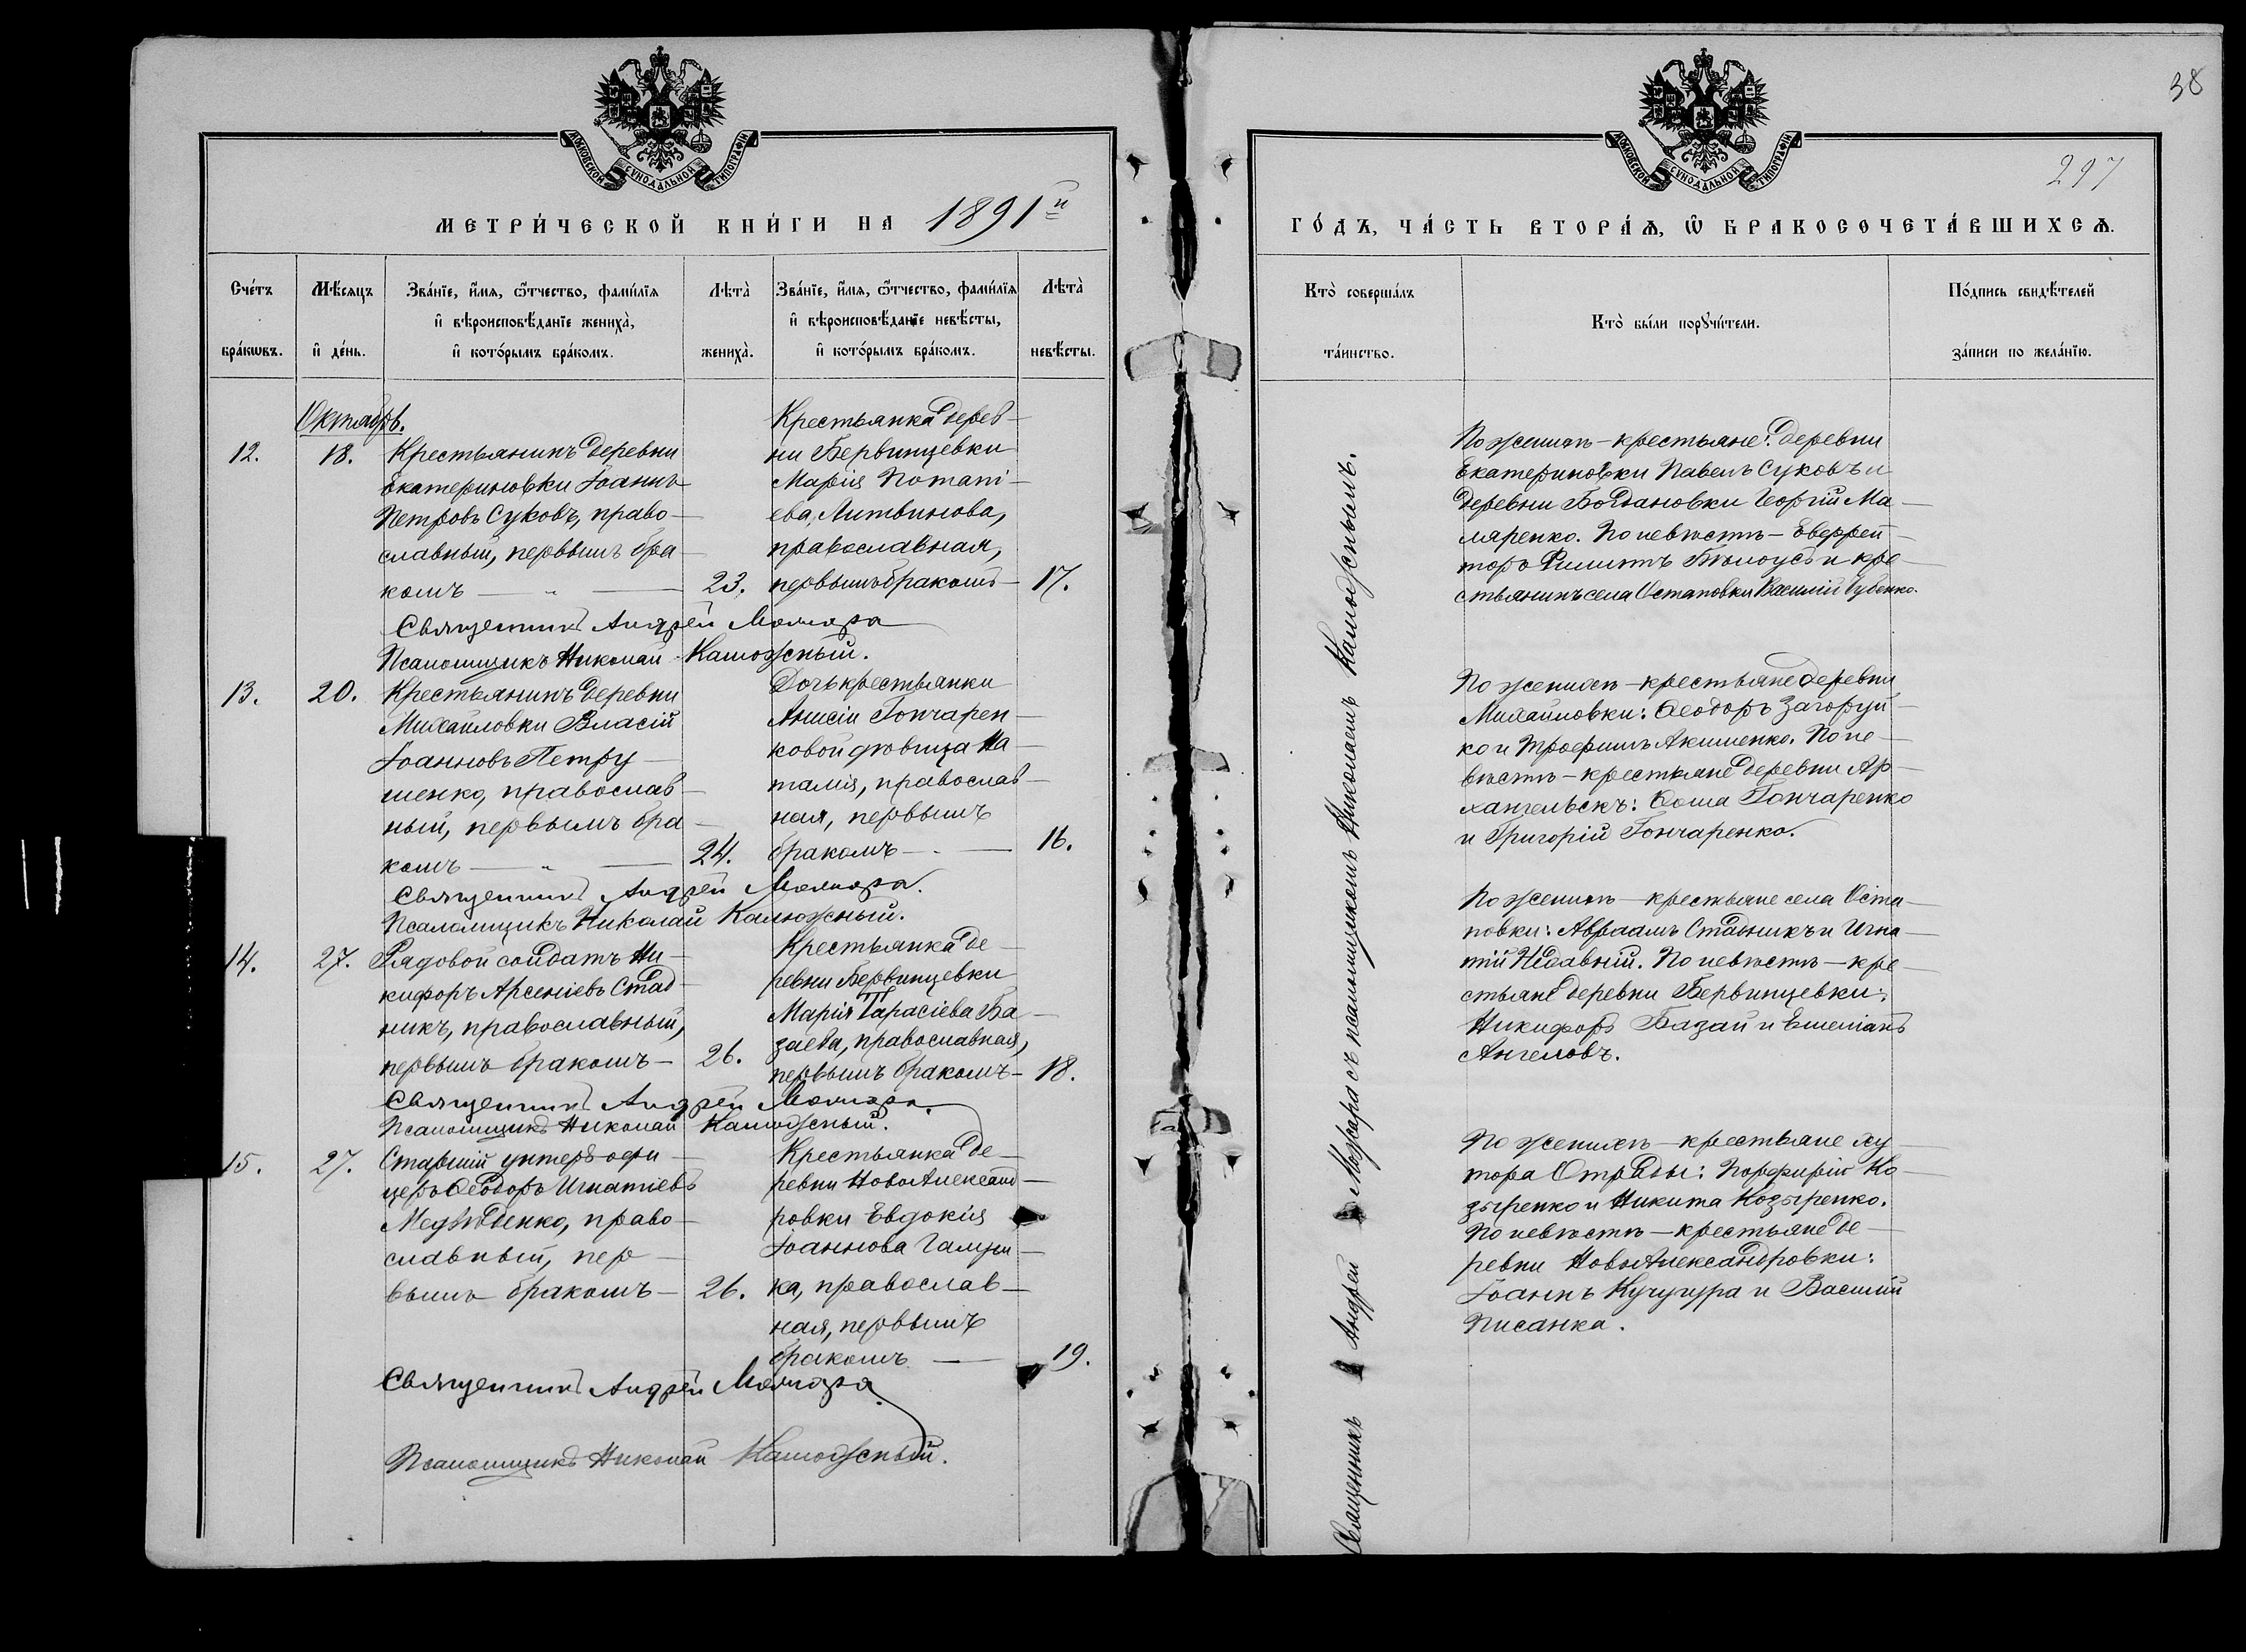 38
МОСКОВСКОЙ СѴНОДАЛЬНОЙ ТИПОГРАФІИ
МОСКОВСКОЙ СѴНОДАЛЬНОЙ ТИПОГРАФІИ
297
МЕТРИ́ЧЕСКОЙ КНИ́ГИ НА 1891й
ГО́ДЪ, ЧА́СТЬ ВТОРА́Ѧ, Ѿ БРАКОСОЧЕТА́ВШИХСѦ.
Сче́тъ бра́кѡвъ.
Мѣ́сяцъ и҆ де́нь.
Зва́нїе, и҆́мя, ѻ҆́тчество, фами́лїя
и҆ вѣроисповѣ́данїе жениха̀,
и҆ кото́рымъ бра́комъ.
Лѣта̀ жениха̀.
Зва́нїе, и҆́мя, ѻ҆́тчество, фами́лїя
и҆ вѣроисповѣ́данїе невѣ́сты,
и҆ кото́рымъ бра́комъ.
Лѣта̀ невѣ́сты.
Кто̀ соверша́лъ
та́инство.
Кто̀ бы́ли порꙋчи́тели.
По́дпись свидѣ́телей
за́писи по жела́нїю.
Октябрь.
12.
18.
Крестьянинъ деревни
Екатериновки Іоаннъ
Петровъ Суковъ, право-
славный, первымъ бра-
комъ — „ —
23.
Крестьянка дерев-
ни Бервинцевки
Марія Потапі-
ева Литвинова,
православная,
первымъ бракомъ —
17.
Священникъ Андрей Можара
Псаломщикъ Николай Калюжный.
13.
20.
Крестьянинъ деревни
Михайловки Власій
Іоанновъ Петру-
шенко, православ-
ный, первымъ бра-
комъ — „ —
24.
Дочь крестьянки
Анисіи Гончарен-
ковой дѣвица На-
талія, православ-
ная, первымъ
бракомъ —
16.
Священникъ Андрей Можара.
Псаломщикъ Николай Калюжный.
14.
27.
Рядовой солдатъ Ни-
кифоръ Арсеніевъ Стад-
никъ, православный,
первымъ бракомъ —
26.
Крестьянка де-
ревни Бервинцевки
Марія Тарасіева Ба-
заева, православная,
первымъ бракомъ —
18.
Священникъ Андрей Можара.
Псаломщикъ Николай Калюжный.
15.
27.
Старшій унтеръ-офи-
церъ Ѳеодоръ Игнатіевъ
Медвѣденко, право-
славный, пер-
вымъ бракомъ —
26.
Крестьянка де-
ревни НовоАлександ-
ровки Евдокія
Іоаннова
ка, православ-
ная, первымъ
бракомъ —
19.
Священникъ Андрей Можара
Псаломщикъ Николай Калюжный.
Священникъ Андрей Можара съ псаломщикомъ Николаемъ Калюжнымъ.
По женихѣ — крестьяне: деревни
Екатериновки Павелъ Суковъ и
деревни Богдановки Георгій Ма-
ляренко. По невѣстѣ — Ефрей-
торъ Филиппъ Бѣлоусъ и кре-
стьянинъ села Остаповки Василій Губенко.
По женихѣ — крестьяне деревни
Михайловки: Ѳеодоръ Загоруй-
ко и Трофимъ Акименко. По не-
вѣстѣ — крестьяне деревни Ар-
хангельскъ: Ѳома Гончаренко
и Григорій Гончаренко.
По женихѣ — крестьяне села Оста-
повки: Авраамъ Стадникъ и Игна-
тій Недавній. По невѣстѣ — кре-
стьяне деревни Бервинцевки:
Никифоръ Базай и Емеліанъ
Ангеловъ.
По женихѣ — крестьяне ху-
тора Отрады: Порфирій Ко-
зыренко и Никита Козыренко.
По невѣстѣ — крестьяне де-
ревни НовоАлександровки:
Іоаннъ Кучугура и Василій
Писанка.